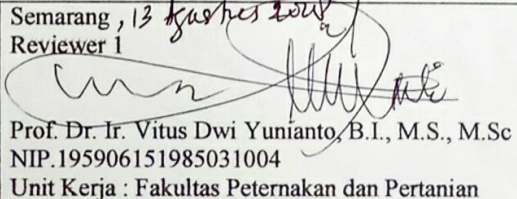 Semarang , 13 Agustus 2018
Reviewer 1
Prof. Dr. Ir. Vitus Dwi Yunianto, B.I., M.S., M.Sc
NIP.195906151985031004
Unit Kerja : Fakultas Peternakan dan Pertanian